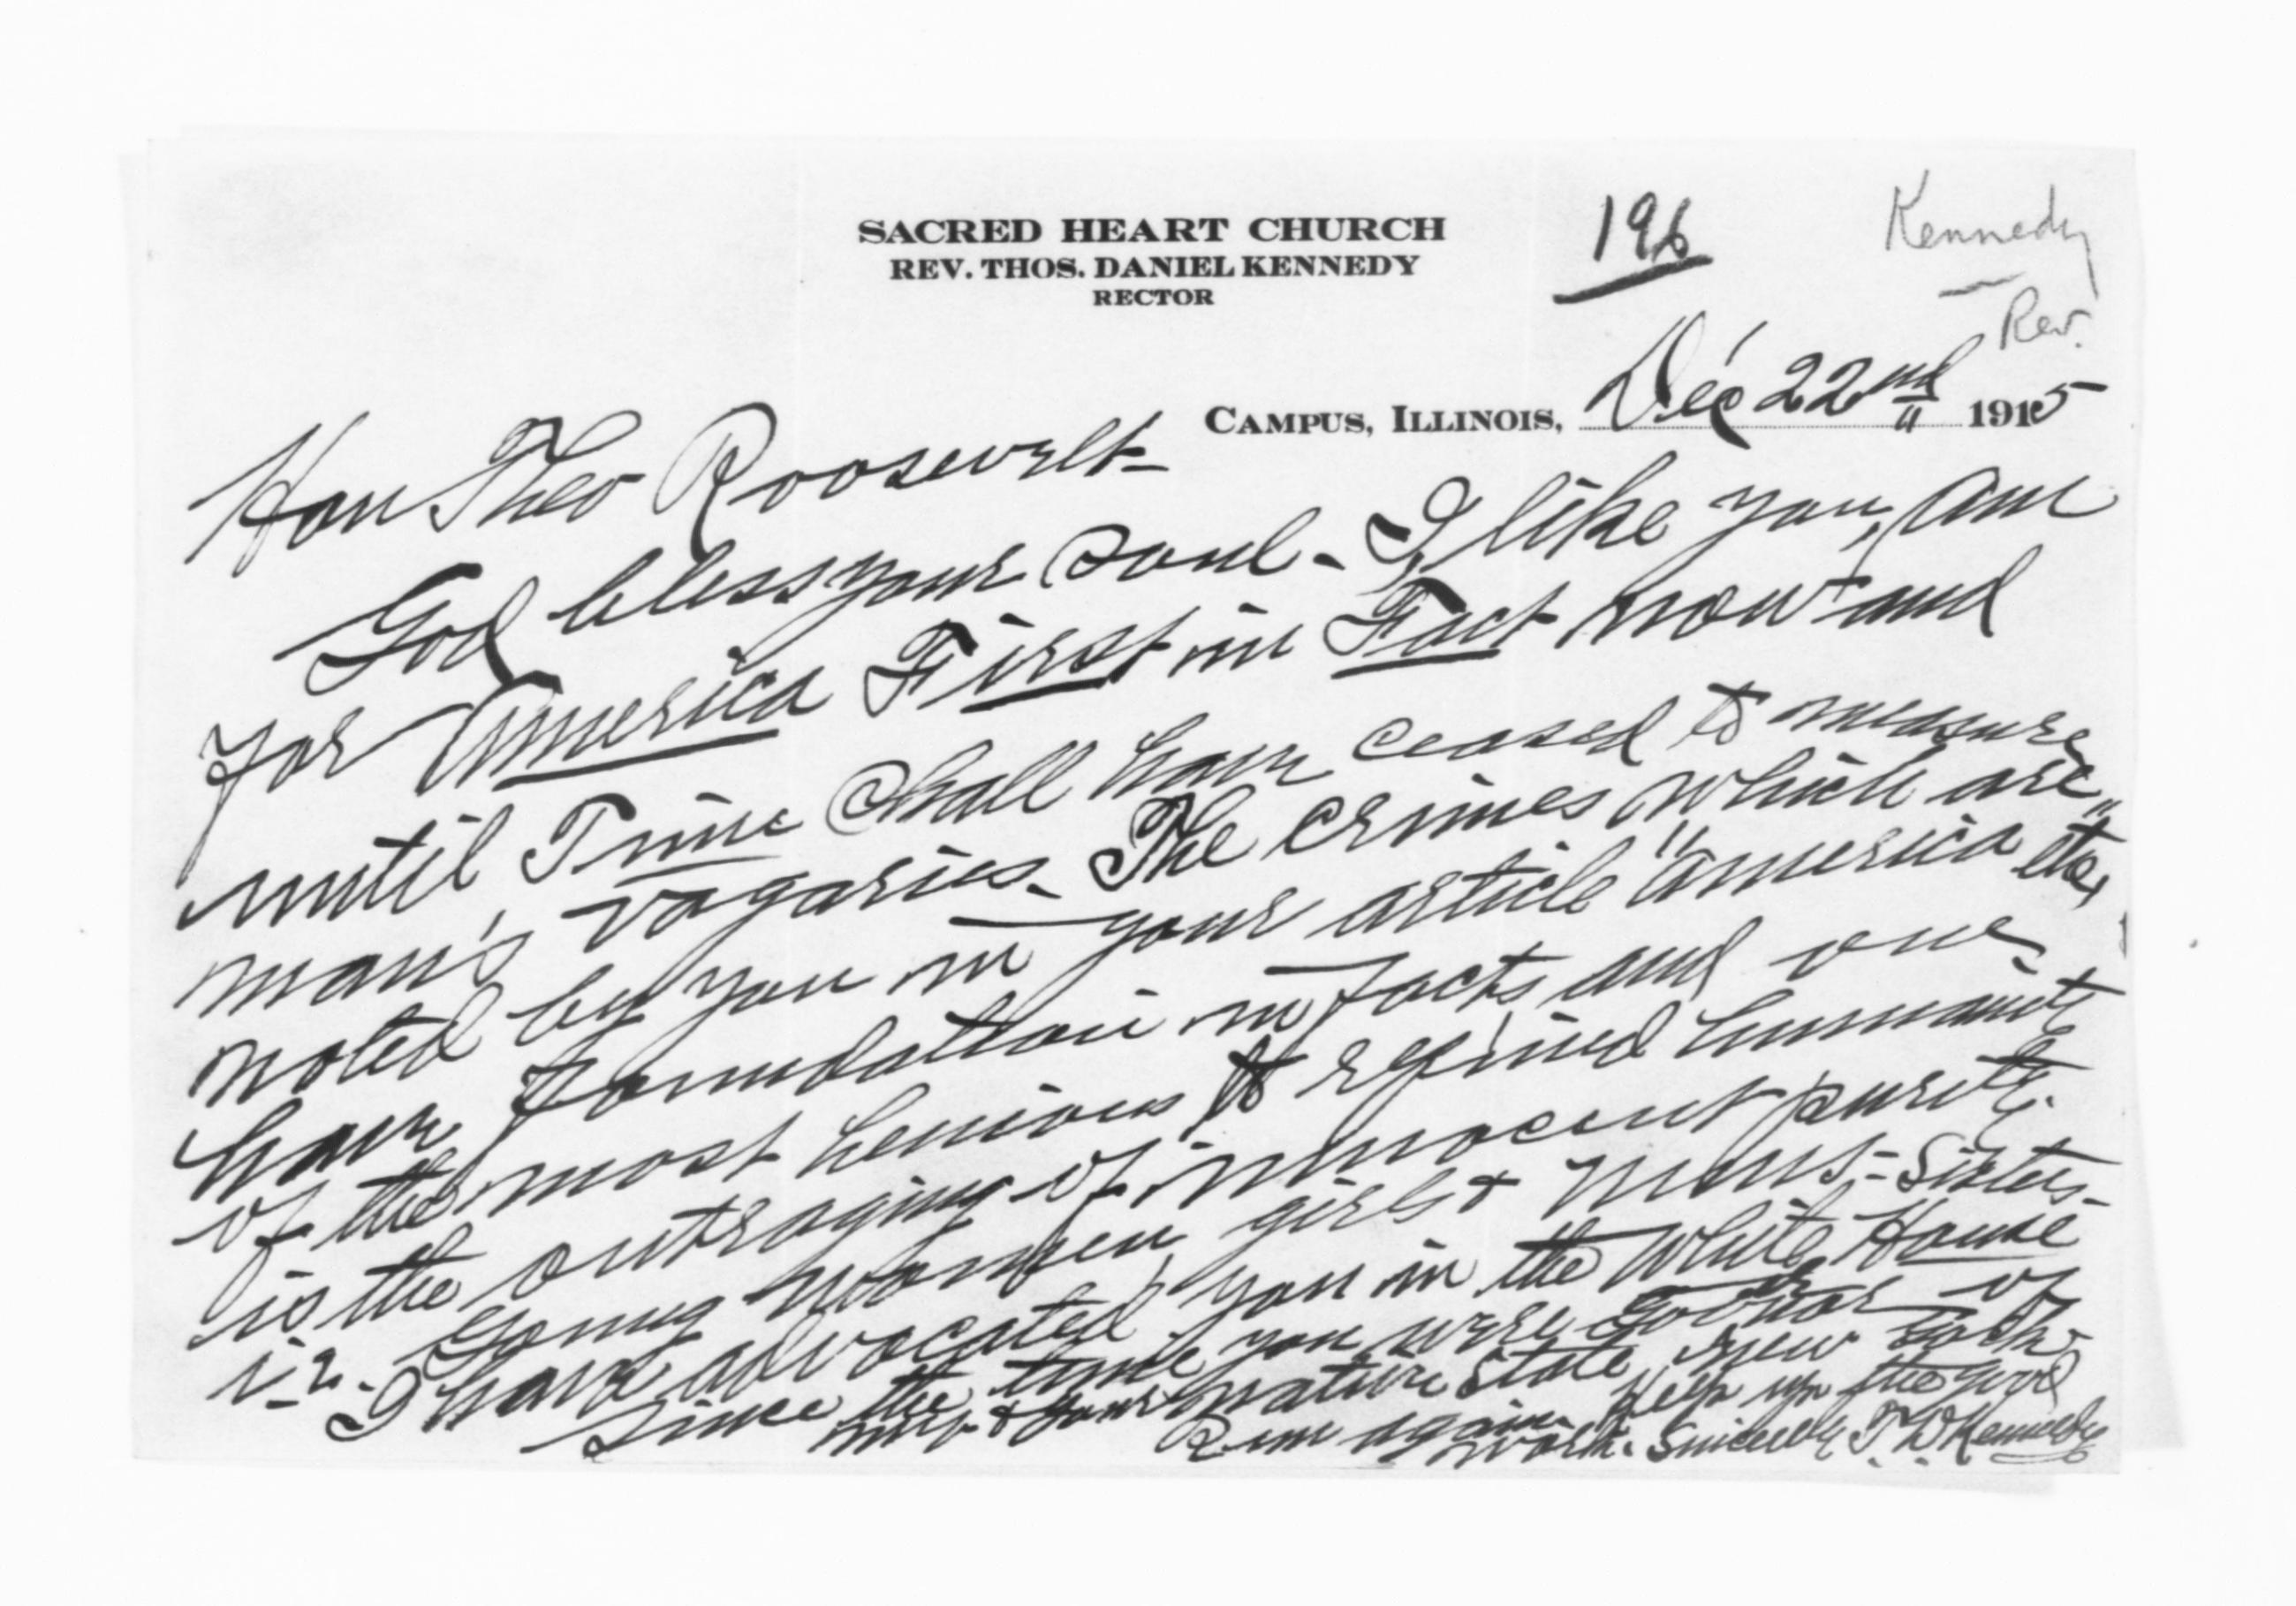 SACRED HEART CHURCH
REV. THOS. DANIEL KENNEDY
RECTOR
196
Kennedy
Rev.
CAMPUS, ILLINOIS, Dec 22nd 1915
Hon Theo Roosevelt-
God bless your soul - I, like you, am
for America First in Fact now and
until Time shall have ceased to measure
man's vagaries. The crimes which are
noted by you in your article "America" etc,
have foundation in facts and one
of the most henious to refined humanity
is the outraging of innocent purity
i-e. young women girls & nuns - Sisters-
I have advocated you in the White House
since the time you were of
my & your native State New York-
Run again. Keep up the good
work. Sincerely T. D. Kennedy